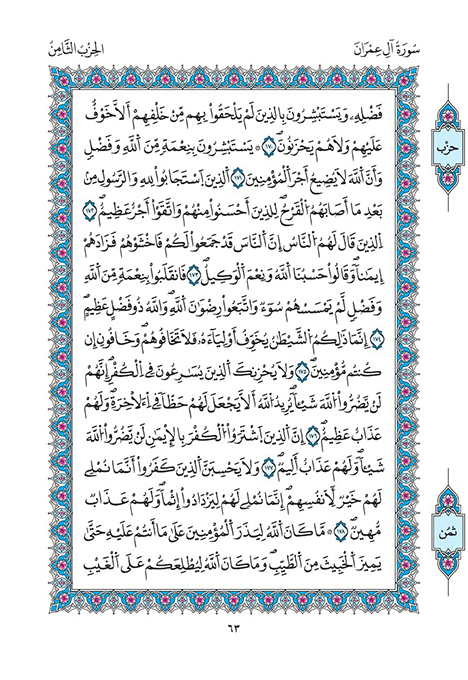 سُورَةُ آلِ عِمْرَانَ
الحِزْبُ الثَّامِنُ
فَضْلِهِۦ وَيَسْتَبْشِرُونَ بِالذِينَ لَمْ يَلْحَقُواْ بِهِم مِّنْ خَلْفِهِمُۥٓ أَلَّا خَوْفٌ
عَلَيْهِمْ وَلَا هُمْ يَحْزَنُونَ ١٧٠ ۞ يَسْتَبْشِرُونَ بِنِعْمَةٍ مِّنَ اَللَّهِ وَفَضْلٍ
وَأَنَّ اَللَّهَ لَا يُضِيعُ أَجْرَ اَلْمُؤْمِنِينَ ١٧١ اَلذِينَ اَسْتَجَابُواْ لِلهِ وَالرَّسُولِ مِنۢ
بَعْدِ مَا أَصَابَهُمُ اُلْقَرْحُ لِلذِينَ أَحْسَنُواْ مِنْهُمْ وَاتَّقَوَاْ اَجْرٌ عَظِيمٌ ١٧٢
اِلذِينَ قَالَ لَهُمُ اُلنَّاسُ إِنَّ اَلنَّاسَ قَدْ جَمَعُواْ لَكُمْ فَاخْشَوْهُمْ فَزَادَهُمُۥ
إِيمَٰناً وَقَالُواْ حَسْبُنَا اَللَّهُ وَنِعْمَ اَلْوَكِيلُ ١٧٣ فَانقَلَبُواْ بِنِعْمَةٍ مِّنَ اَللَّهِ
وَفَضْلٍ لَّمْ يَمْسَسْهُمْ سُوٓءٌ وَاتَّبَعُواْ رِضْوَٰنَ اَللَّهِ وَاللَّهُ ذُو فَضْلٍ عَظِيمٍ
١٧٤ اِنَّمَا ذَٰلِكُمُ اُلشَّيْطَٰنُ يُخَوِّفُ أَوْلِيَآءَهُۥ فَلَا تَخَافُوهُمْ وَخَافُونِ إِن
كُنتُم مُّؤْمِنِينَ ١٧٥ وَلَا يُحْزِنكَ اَلذِينَ يُسَٰرِعُونَ فِي اِلْكُفْرِ إِنَّهُمْ
لَنْ يَّضُرُّواْ اُللَّهَ شَيْـٔاً يُرِيدُ اُللَّهُ أَلَّا يَجْعَلَ لَهُمْ حَظّاً فِي اِلَاخِرَةِ وَلَهُمْ
عَذَابٌ عَظِيمٌ ١٧٦ اِنَّ اَلذِينَ اَشْتَرَوُاْ اُلْكُفْرَ بِالِايمَٰنِ لَنْ يَّضُرُّواْ اُللَّهَ
شَيْـٔاً وَلَهُمْ عَذَابٌ أَلِيمٌ ١٧٧ وَلَا يَحْسِبَنَّ اَلذِينَ كَفَرُوٓاْ أَنَّمَا نُمْلِي
لَهُمْ خَيْرٌ لِّأَنفُسِهِمُۥٓ إِنَّمَا نُمْلِي لَهُمْ لِيَزْدَادُوٓاْ إِثْماً وَلَهُمْ عَذَابٌ
مُّهِينٌ ١٧٨ ۞ مَّا كَانَ اَللَّهُ لِيَذَرَ اَلْمُؤْمِنِينَ عَلَىٰ مَا أَنتُمْ عَلَيْهِ حَتَّىٰ
يَمِيزَ اَلْخَبِيثَ مِنَ اَلطَّيِّبِ وَمَا كَانَ اَللَّهُ لِيُطْلِعَكُمْ عَلَى اَلْغَيْبِ
حزب
ثمن
٦٣